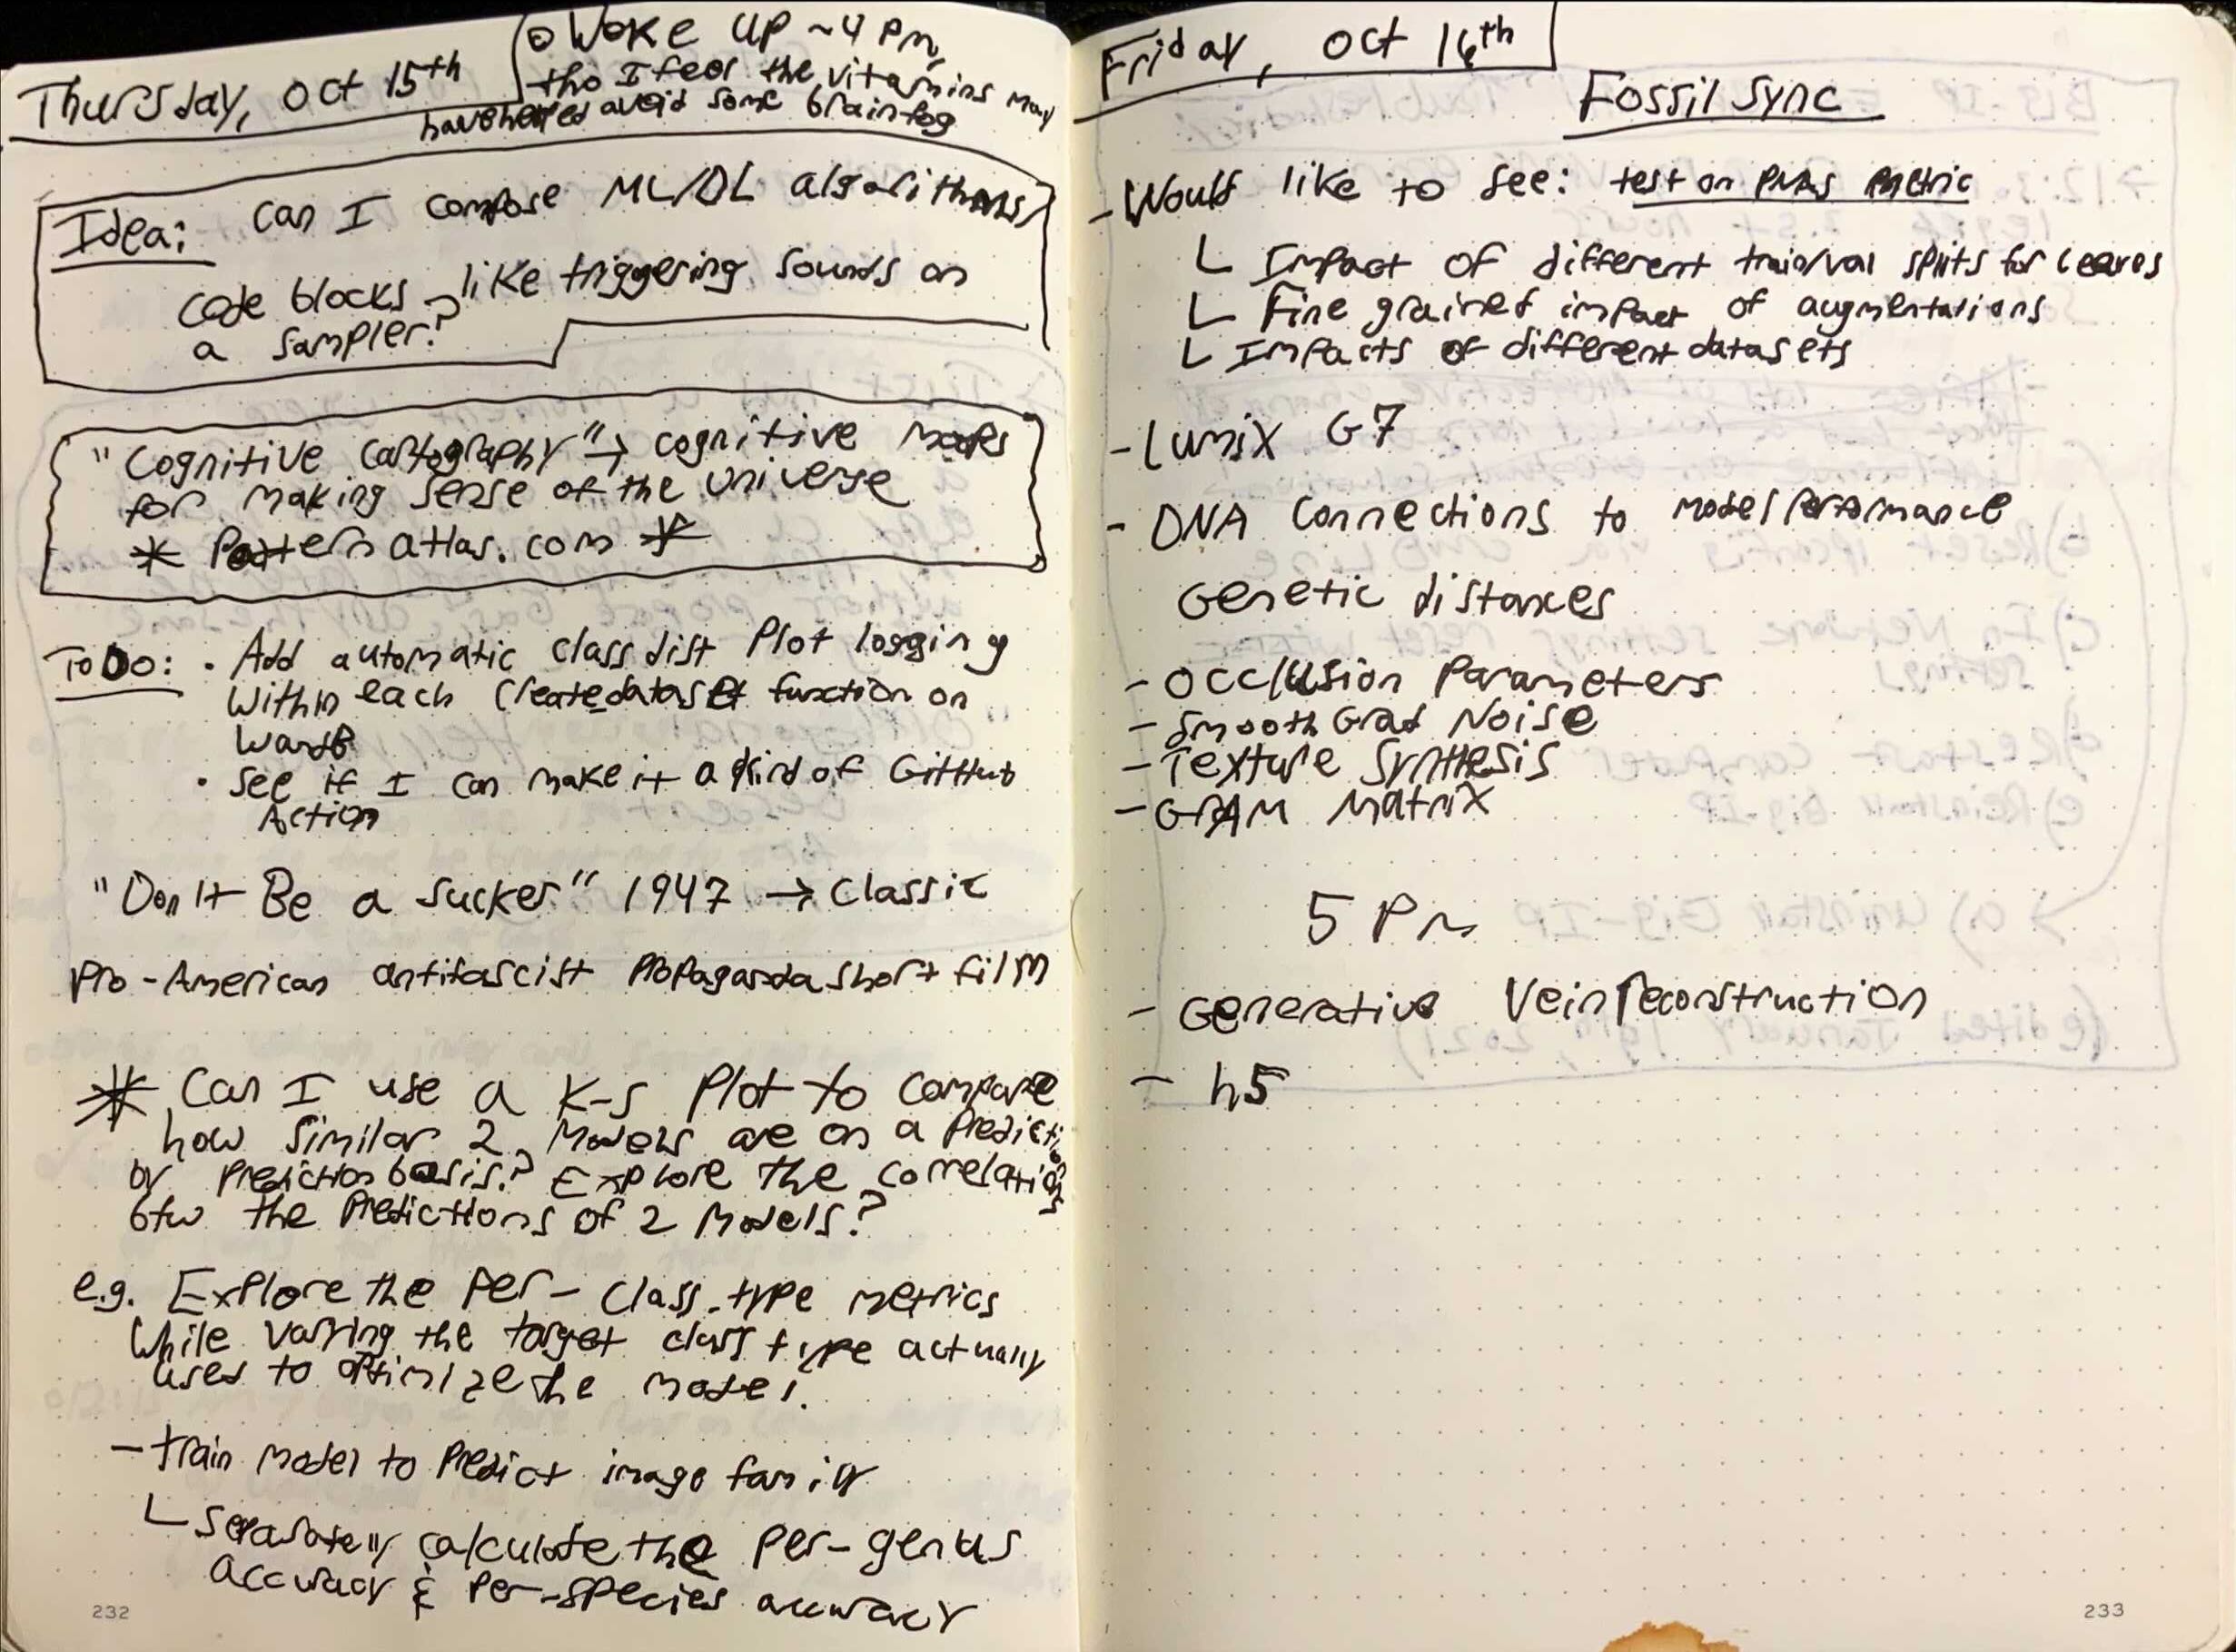 Thursday, Oct 15th
o Woke up ~4 pm,
tho I feel the vitamins may
have helped avoid some brainfog
Idea: can I compose ML/DL algorithms
code blocks like triggering sounds on
a sampler?
"Cognitive cartography" → cognitive maps
for making sense of the universe
* Patternatlas.com *
To Do: • Add automatic class dist plot logging
within each create_dataset function on
wandb
• See if I can make it a kind of GitHub
Action
"Don't Be a Sucker" 1947 → Classic
Pro-American antifascist propaganda short film
* Can I use a K-S Plot to compare
how similar 2 models are on a prediction
by prediction basis? Explore the correlations
btw the predictions of 2 models?
e.g. Explore the per-class-type metrics
while varying the target class type actually
used to optimize the model.
- train model to predict image family
L separately calculate the per-genus
accuracy & per-species accuracy
232
Friday, Oct 16th
Fossil Sync
- Would like to see: test on metric
L Impact of different train/val splits for leaves
L Fine grained impact of augmentations
L Impacts of different datasets
- Lumix G7
- DNA Connections to model performance
Genetic distances
- Occlusion Parameters
- Smooth Grad Noise
- Texture Synthesis
- GRAM Matrix
5 Pm
- Generative Vein reconstruction
- h5
233